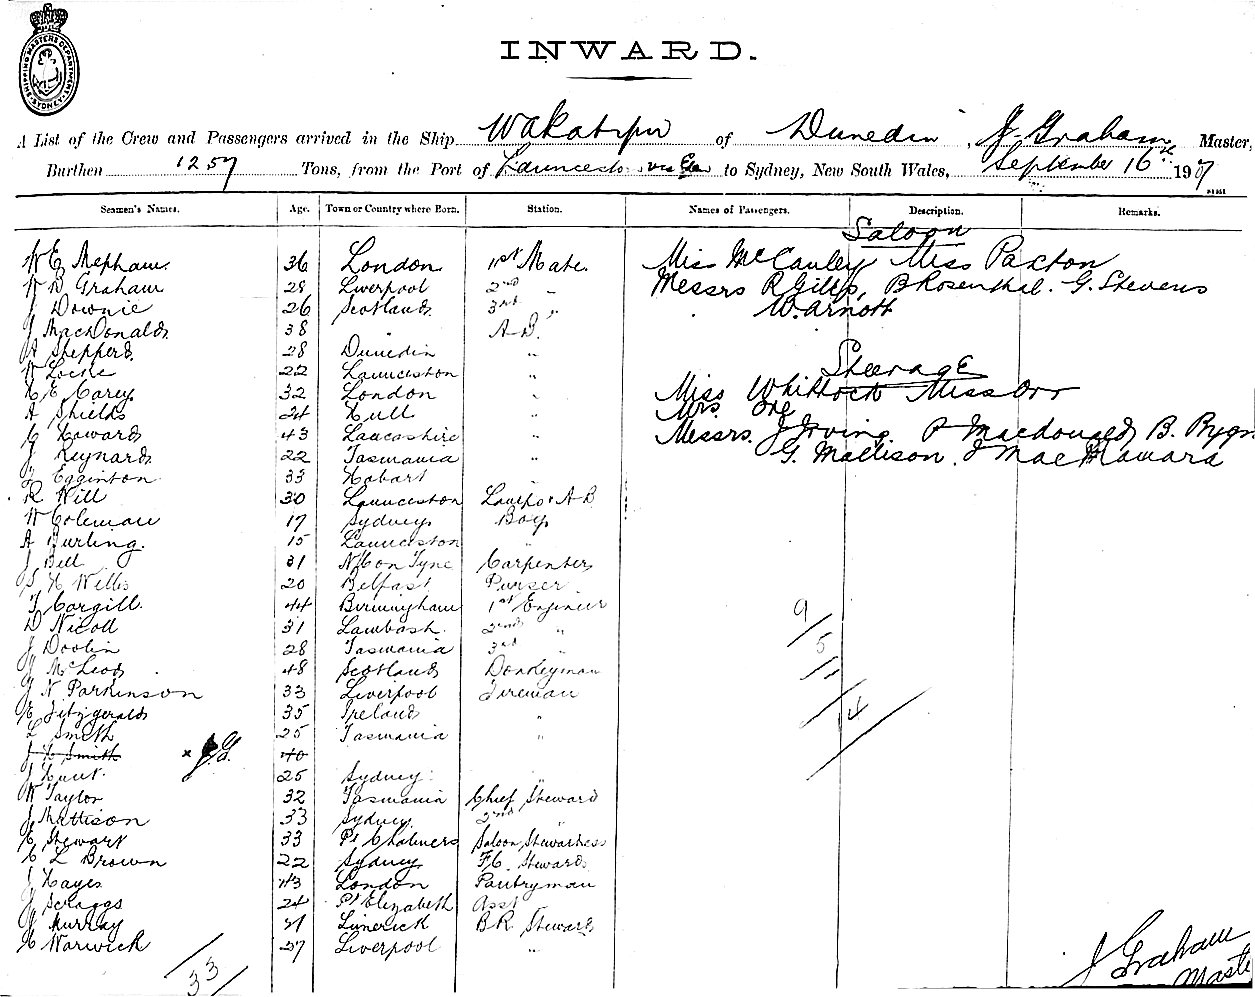 SHIPPING MASTERS DEPARTMENT SYDNEY
INWARD.
A List of the Crew and Passengers arrived in the Ship Wakatipu of Dunedin, J. Graham Master,
Burthen 1257 Tons, from the Port of Launceston via Eden to Sydney, New South Wales, September 16th 1907
Seamen's Names. Age. Town or Country where Born. Station. Names of Passengers. Description. Remarks.
Saloon
W E Mepham 36 London 1st Mate. Miss McCauley Miss Paxton
W D Graham 28 Liverpool 2nd " Messrs R Gillp, B Rosenthal. G. Stevens
J Downie 26 Scotland 3rd " W. Arnott
J MacDonald 38 A-B.
A Shepperd 28 Dunedin "
Steerage
W Locke 22 Launceston "
C E Carey 32 London " Miss Whittock Miss Orr
A Shields 24 Hull " Mrs. Ore
C Howard 43 Lancashire " Messrs. J Irving. P Macdougald, B.
J Reynards 22 Tasmania " G. Mattison. J MacNamara
Egginton 33 Hobart "
R Will 30 Launceston Lamps & A B
W Coleman 17 Sydney Boy
A Burling. 15 Launceston "
J Bell 31 N/C on Tyne Carpenter
S H Willis 20 Belfast Purser
T Cargill. 44 Birmingham 1st Engineer
D Nicoll 31 Lambash. 2nd "
J Doolin 28 Tasmania 3rd "
J McLeod 48 Scotland Donkeyman
J N Parkinson 33 Liverpool Fireman
E Fitzgerald 35 Ireland "
L Smith 25 Tasmania "
J H Smith x J.G. 40
J Hunt. 25 Sydney "
W Taylor 32 Tasmania Chief Steward
J Mattison 33 Sydney 2nd "
E Stewart 33 Pt Chalmers Saloon Stewardess
C L Brown 22 Sydney F.C. Steward
J Hayes 43 London Pantryman
J Scraggs 24 Pt Elizabeth Asst "
J Murray Limerick B R Steward
C Warwick 27 Liverpool "
33
9
5
14
J Graham
Master